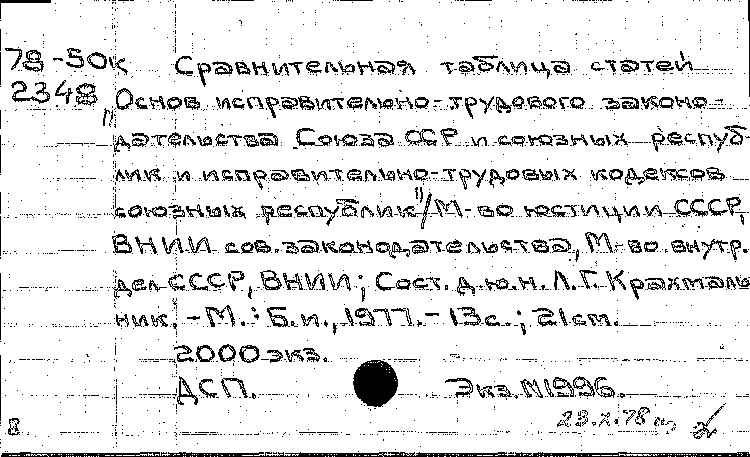 78-50к Сравнительная таблица статей
2348 "Основ исправительно-трудового законо-
дательства Союза ССР и союзных респуб-
лик и исправительно-трудовых кодексов
союзных республик"/М-во юстиции СССР,
ВНИИ сов. законодательства, М-во внутр.
дел СССР, ВНИИ; Сост. д.ю.н. Л.Г. Крахмаль
ник. - М.: Б.и., 1977. - 13с.; 21см.
2000 экз.
ДСП. Экз. №1996.
23.X.78
8